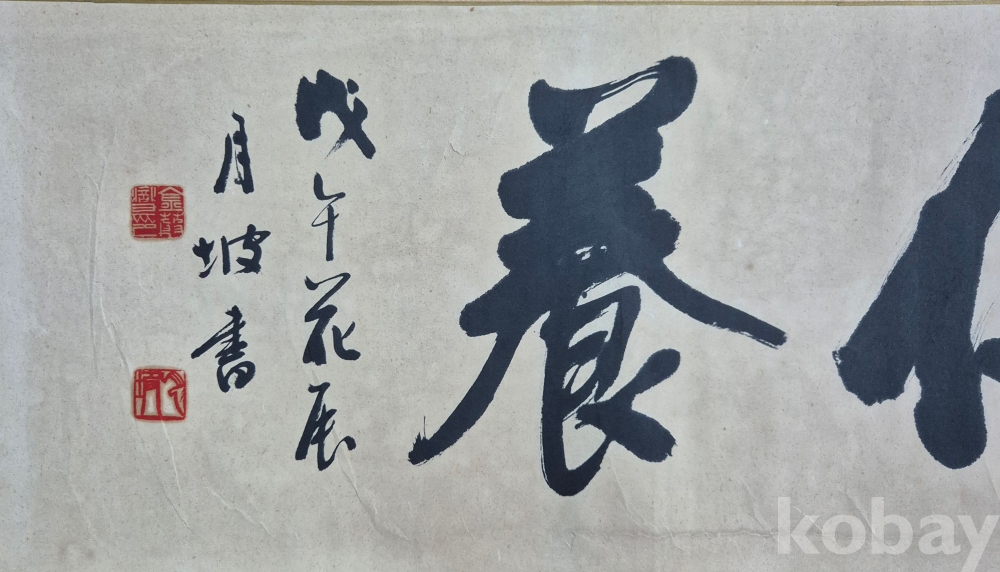 養
戊午花辰
月坡書
kobay